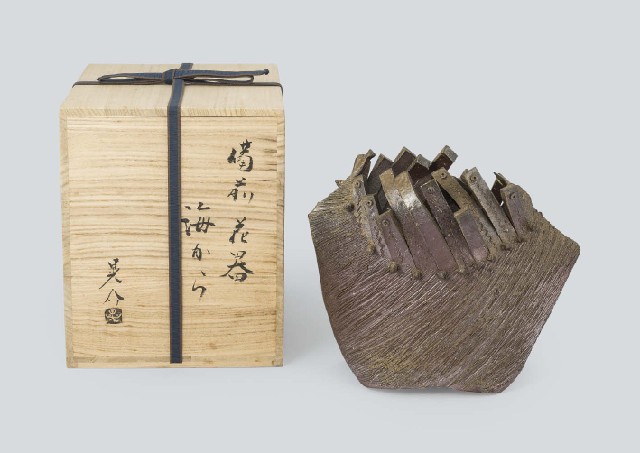 備前 花器
海から
晃介